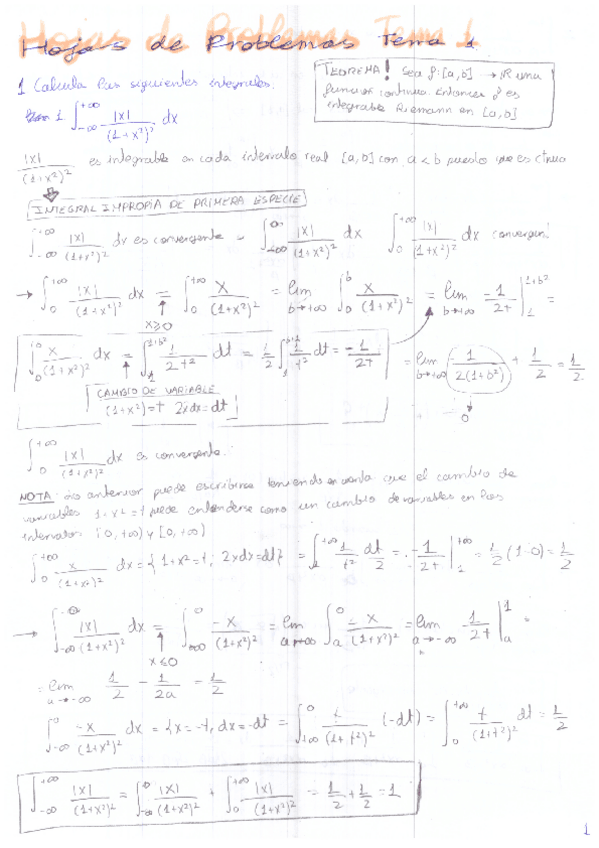 Hojas de Problemas Tema 1
1 Calcula las siguientes integrales.
TEOREMA! Sea f:[a,b] → R una
función continua. Entonces f es
integrable Riemann en [a,b]
1 ∫_{-∞}^{+∞} |x|/(1+x²)² dx
|x|/(1+x²)² es integrable en cada intervalo real [a,b] con a<b puesto que es
INTEGRAL IMPROPIA DE PRIMERA ESPECIE
∫_{-∞}^{+∞} |x|/(1+x²)² dx es convergente ∫ |x|/(1+x²)² dx ∫_0^{+∞} |x|/(1+x²)² dx convergen!
→ ∫_0^{+∞} |x|/(1+x²)² dx = ∫_0^{+∞} x/(1+x²)² = lim_{b→+∞} ∫_0^b x/(1+x²)² = lim_{b→+∞} -1/2t |_1^{1+b²} =
x≥0
∫_0 x/(1+x²)² dx = ∫_1^{1+b²} 1/2t² dt = 1/2 ∫_1 1/t² dt = -1/2t
CAMBIO DE VARIABLE
(1+x²)=t 2xdx=dt
= lim_{b→+∞} -1/2(1+b²) + 1/2 = 1/2
0
∫_0^{+∞} |x|/(1+x²)² dx es convergente.
NOTA: Lo anterior puede escribirse teniendo en cuenta que el cambio de
variables 1+x²=t puede entenderse como un cambio de variables en los
intervalos [0,+∞) y [0,+∞)
∫_0^{+∞} x/(1+x²)² dx = {1+x²=t; 2xdx=dt} = ∫_1^{+∞} 1/t² dt/2 = -1/2t |_1^{+∞} = 1/2 (1-0) = 1/2
→ ∫_{-∞} |x|/(1+x²)² dx = ∫_{-∞}^0 -x/(1+x²)² = lim_{a→-∞} ∫_a^0 -x/(1+x²)² = lim_{a→-∞} -1/2t |_a^1
x≤0
= lim_{a→-∞} 1/2 - 1/2a = 1/2
∫_{-∞}^0 -x/(1+x²)² dx = {x=-t, dx=-dt} = ∫_{+∞}^0 t/(1+t²)² (-dt) = ∫_0^{+∞} t/(1+t²)² dt = 1/2
∫_{-∞}^{+∞} |x|/(1+x²)² = ∫_{-∞}^0 |x|/(1+x²)² + ∫_0^{+∞} |x|/(1+x²)² = 1/2 + 1/2 = 1
1